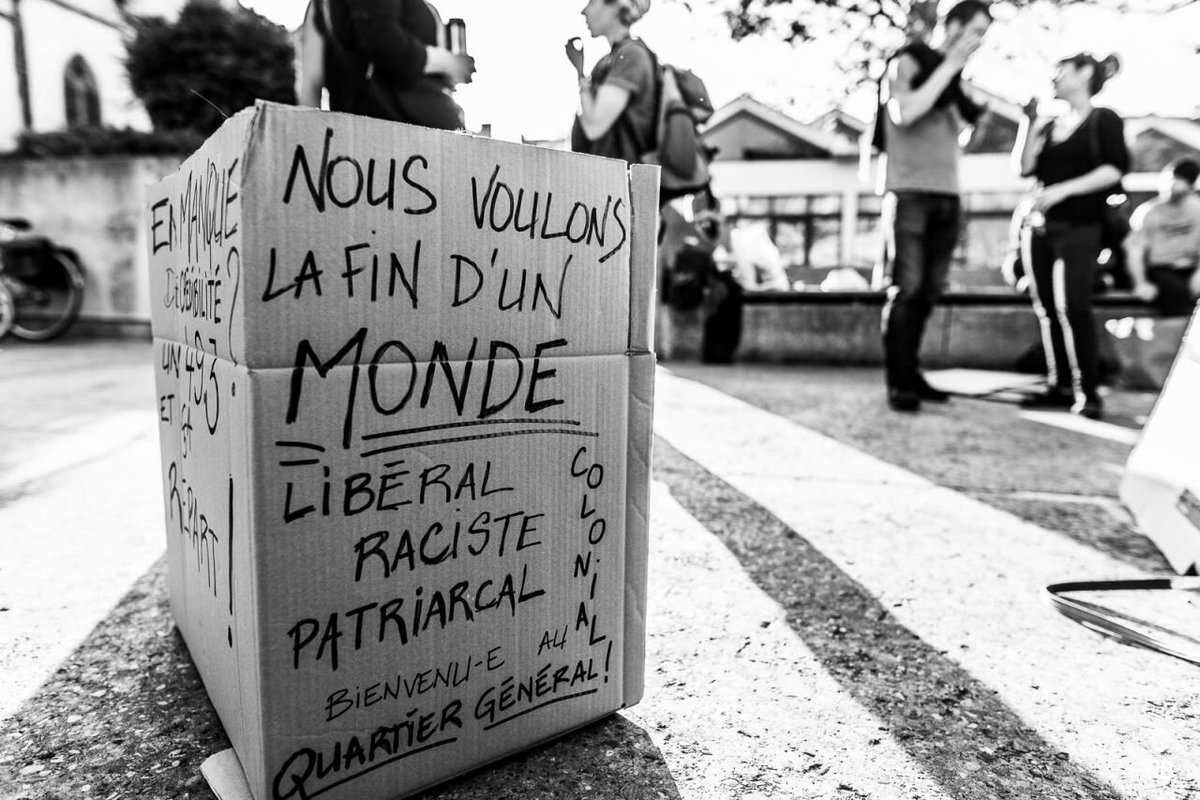 EN MANQUE
DE CRÉDIBILITÉ ?
UN 49.3
ET
REPART !
NOUS VOULONS
LA FIN D'UN
MONDE
LIBÉRAL
RACISTE
PATRIARCAL
COLONIAL
BIENVENU-E AU
QUARTIER GÉNÉRAL !